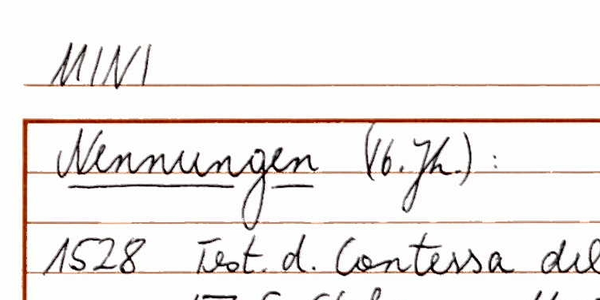 MINI
Nennungen (16. Jh.):
1528 Test. d. Contessa del